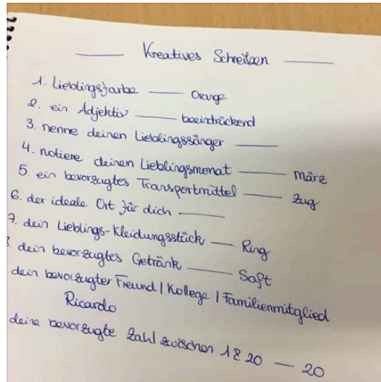 Kreatives Schreiben
1. Lieblingsfarbe Orange
2. ein Adjektiv beeindrückend
3. nenne deinen Lieblingssänger
4. notiere deinen Lieblingsmonat März
5. ein bevorzugtes Transportmittel Zug
6. der ideale Ort für dich
7. dein Lieblings-Kleidungsstück Ring
8. dein bevorzugtes Getränk Saft
dein bevorzugter Freund | Kollege | Familienmitglied
Ricardo
deine bevorzugte Zahl zwischen 1 & 20 — 20